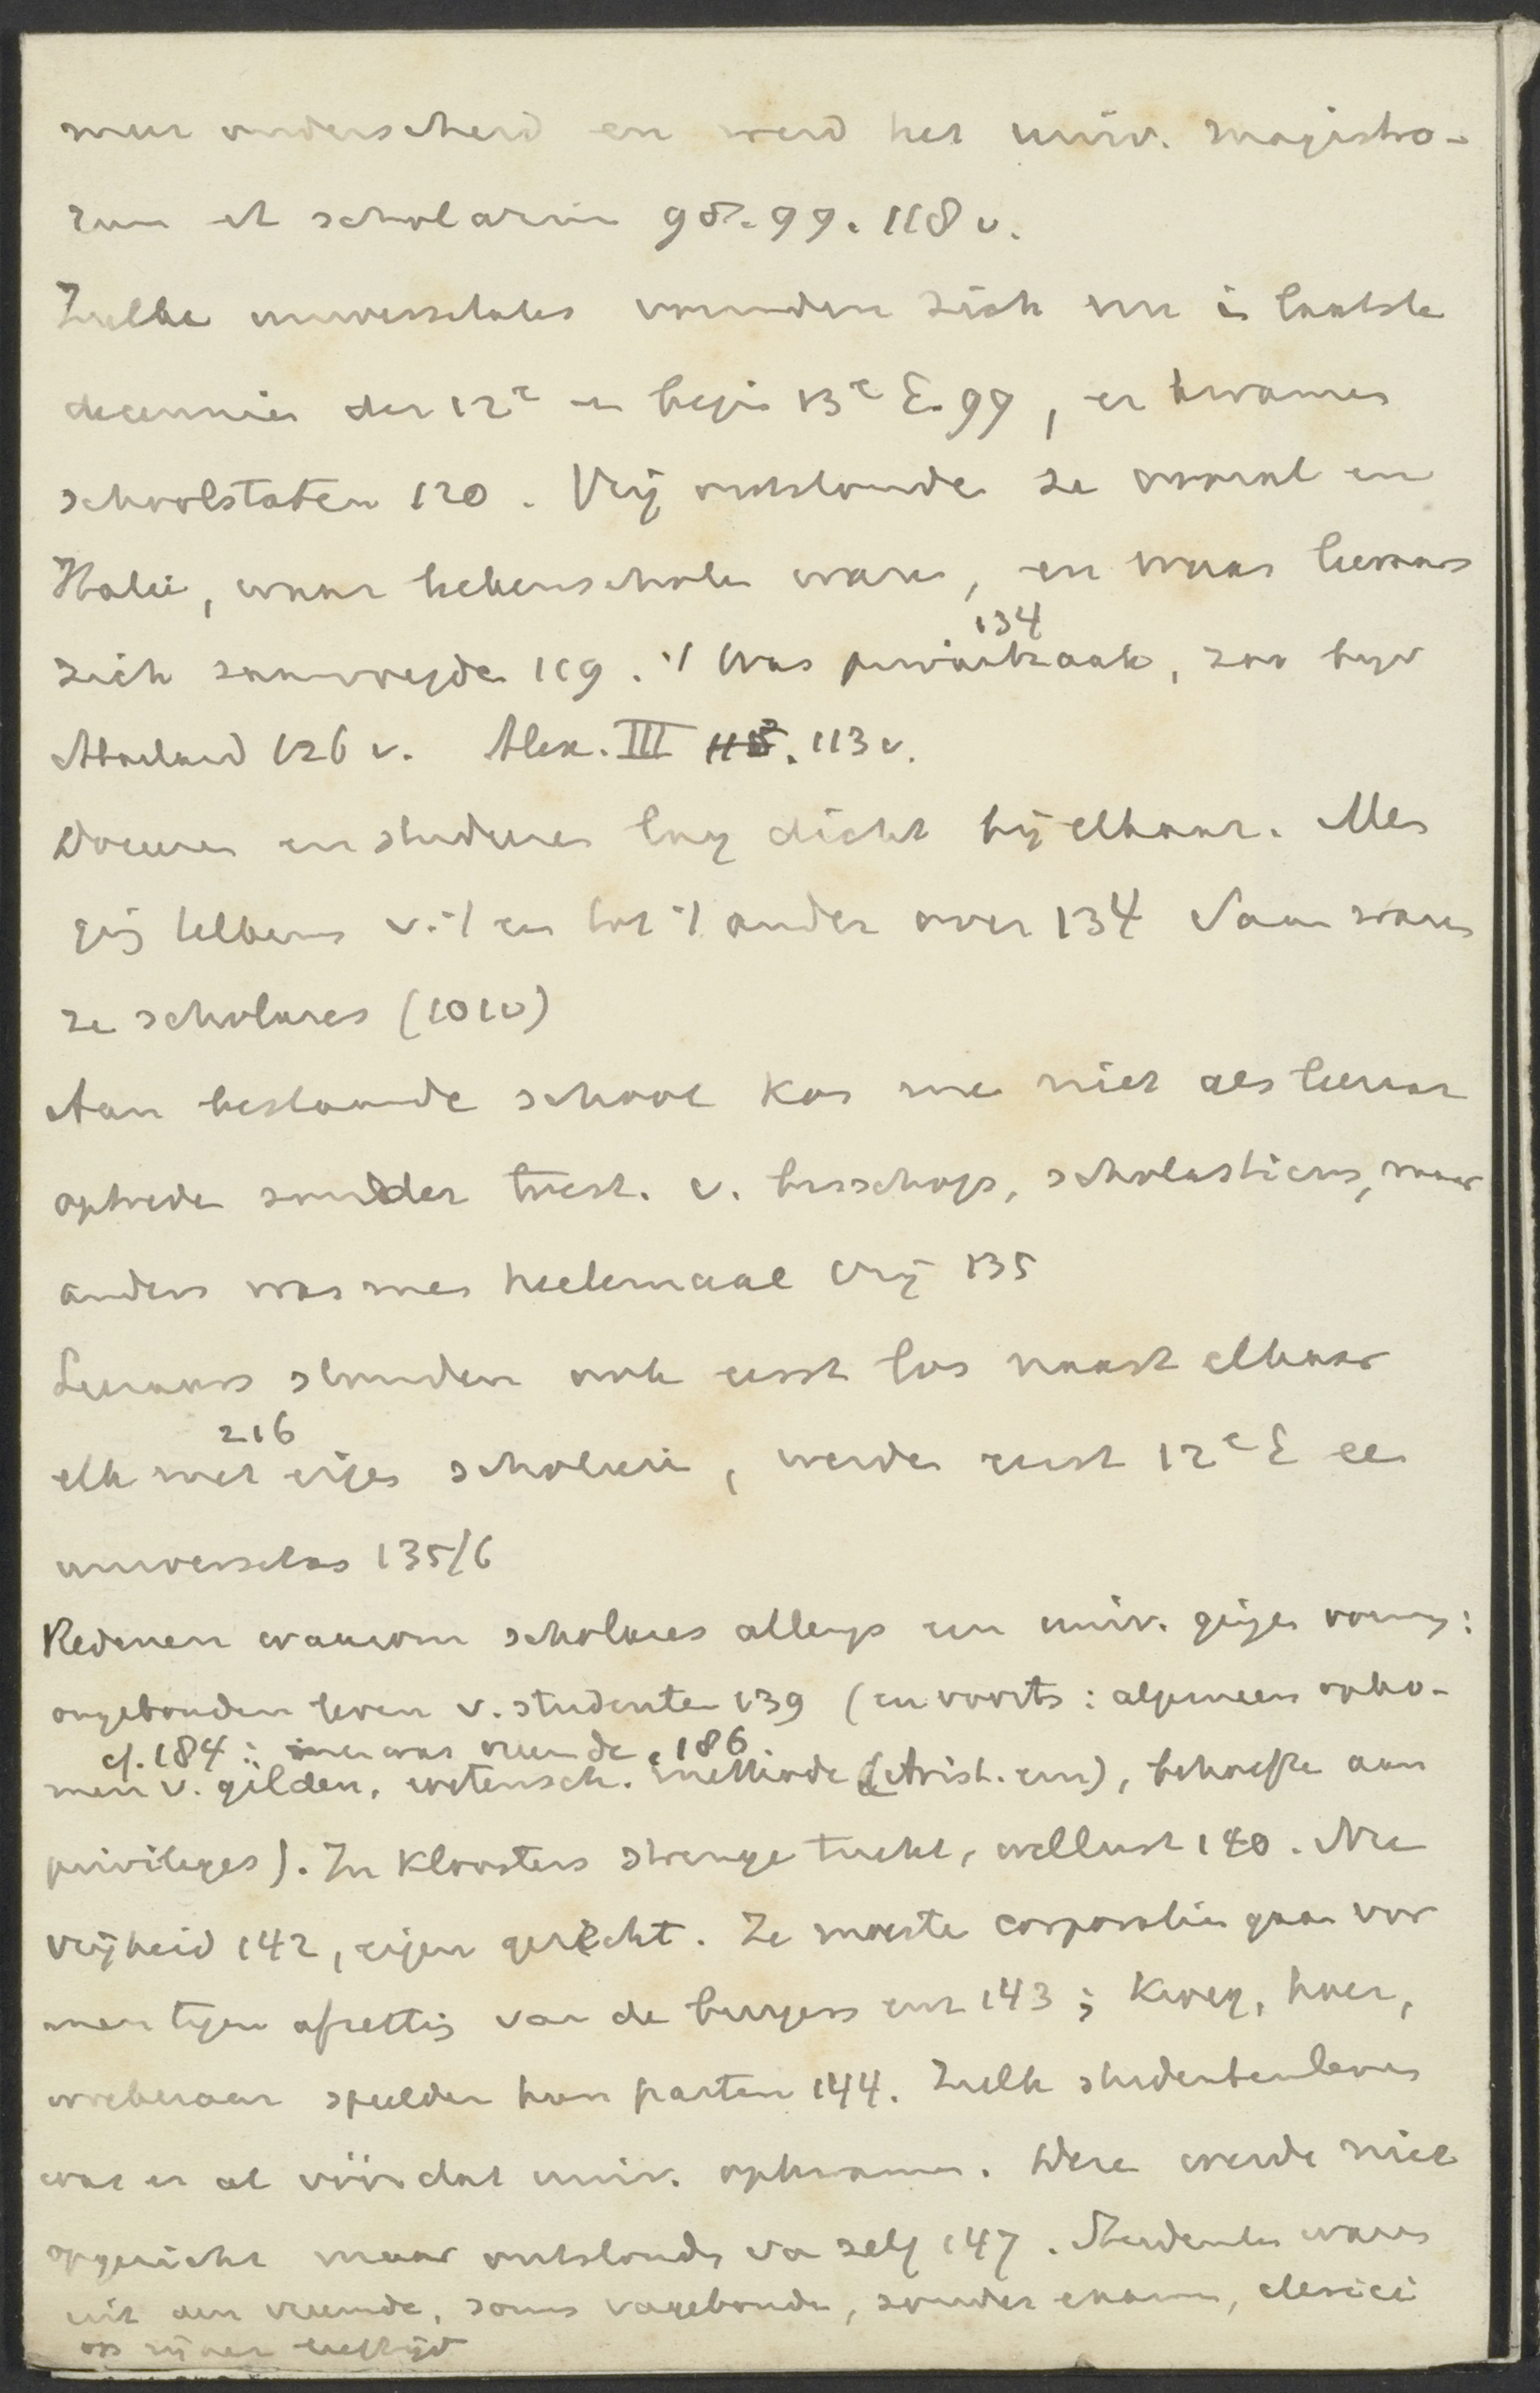 meer onderscheid en werd het univ. magistro-
rum et scholarium 98. 99. 118 v.
Zulke universitates vormden zich nu in laatste
decenniën der 12e en begin 13e E. 99, er kwamen
schoolstaten 120. Vrij ontstonden ze vooral in
Italië, waar lekenscholen waren, en waar leeraars
zich samenvoegden 119. 't Was privaatzaak, zoo bijv
134
Abaelard 126 v. Alex. III 113 v.
Doceeren en studeeren lag dicht bij elkaar. Men
ging telkens v. 't een tot 't ander over 134 Saam waren
ze scholares (101 v)
Aan bestaande school kon men niet als leeraar
optreden zonder toest. v. bisschop, scholasticus, maar
anders was men heelemaal vrij 135
Leeraars stonden ook eerst los naast elkaar
elk met eigen scholieren, werden eerst 12e E een
216
universitas 135/6
Redenen waarom scholares allengs een univ. gingen vormen:
ongebonden leven v. studenten 139 (en voorts: algemeen opko-
cf. 184: men was vreemde, 186
men v. gilden, wetensch. methode (Arist. enz), behoefte aan
privileges). In Kloosters strenge tucht, wellust 140. Nu
vrijheid 142, eigen gericht. Ze moesten corporatie gaan vor
men tegen afzetting van de burgers enz 143; Kroeg, hoer,
woekeraar speelden hun parten 144. Zulk studentenleven
was er al vóór dat univ. opkwamen. Deze werden niet
opgericht maar ontstonden van zelf 147. Studenten waren
uit den vreemde, soms vagebonden, zonder examen, clerici
op rijper leeftijd